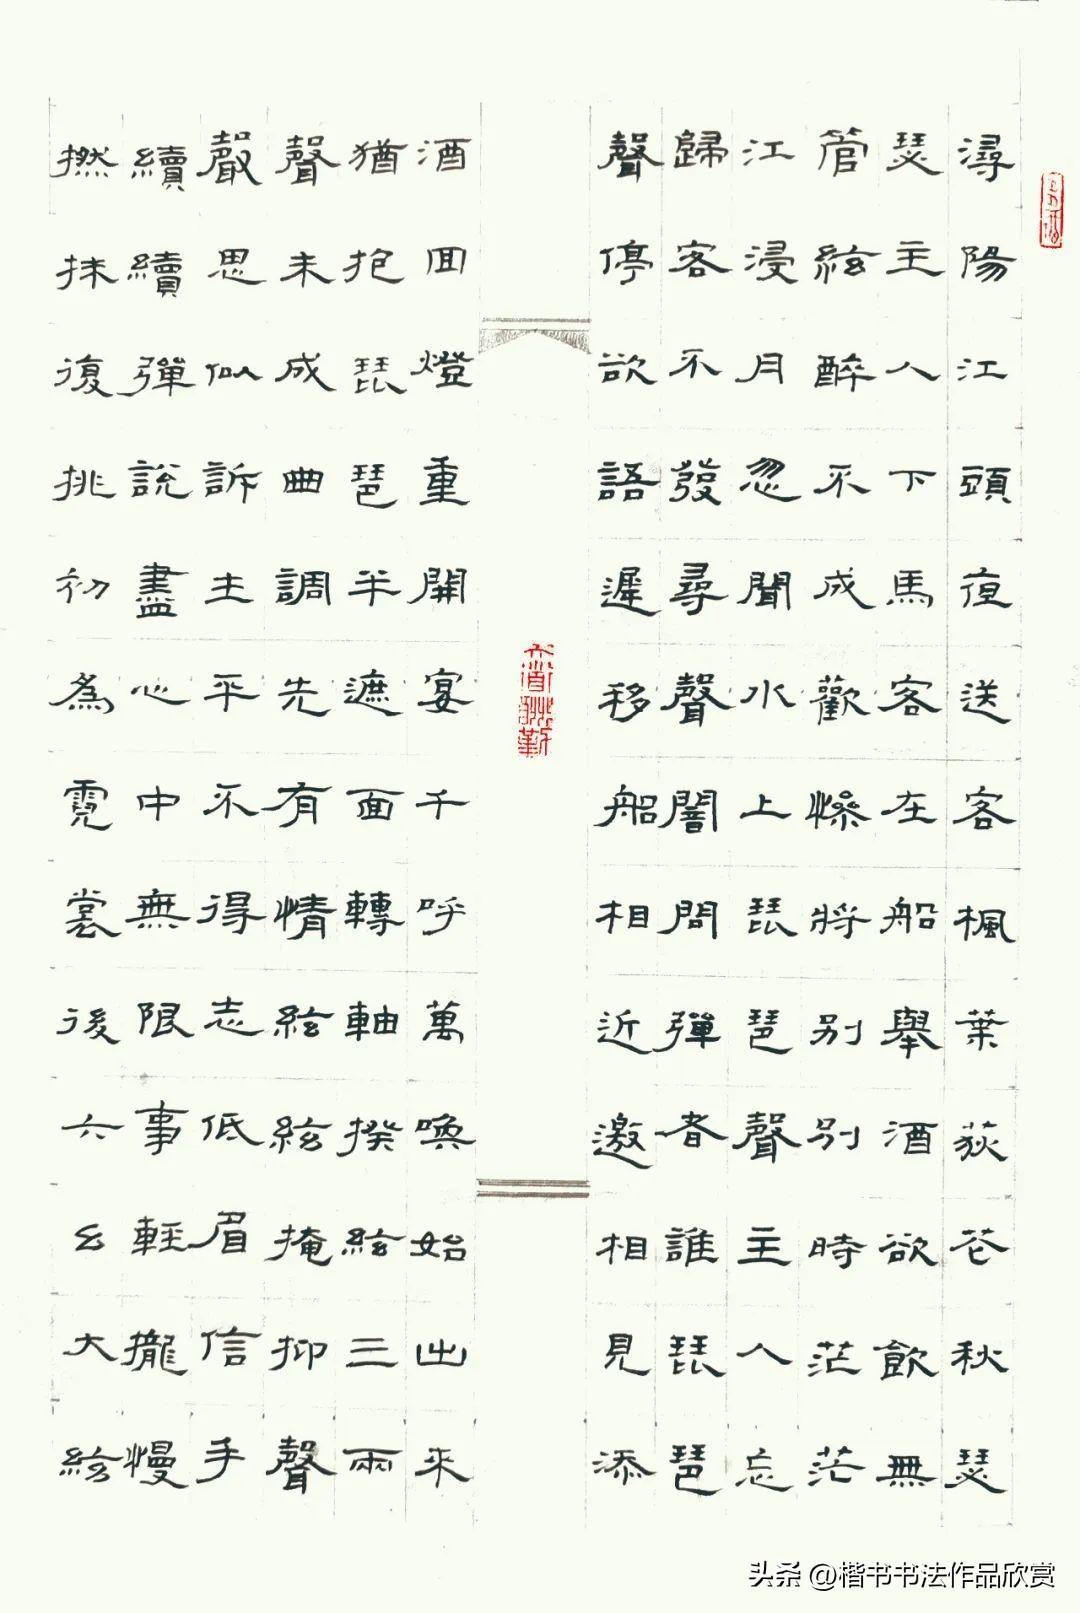 潯陽江頭夜送客楓葉荻花秋瑟
瑟主人下馬客在船舉酒欲飲無
管絃醉不成歡慘將別別時茫茫
江浸月忽聞水上琵琶聲主人忘
歸客不發尋聲闇問彈者誰琵琶
聲停欲語遲移船相近邀相見添
酒回燈重開宴千呼萬喚始出來
猶抱琵琶半遮面轉軸撥絃三兩
聲未成曲調先有情絃絃掩抑聲
聲思似訴生平不得志低眉信手
續續彈說盡心中無限事輕攏慢
撚抹復挑初為霓裳後六幺大絃
头条 @楷书书法作品欣赏